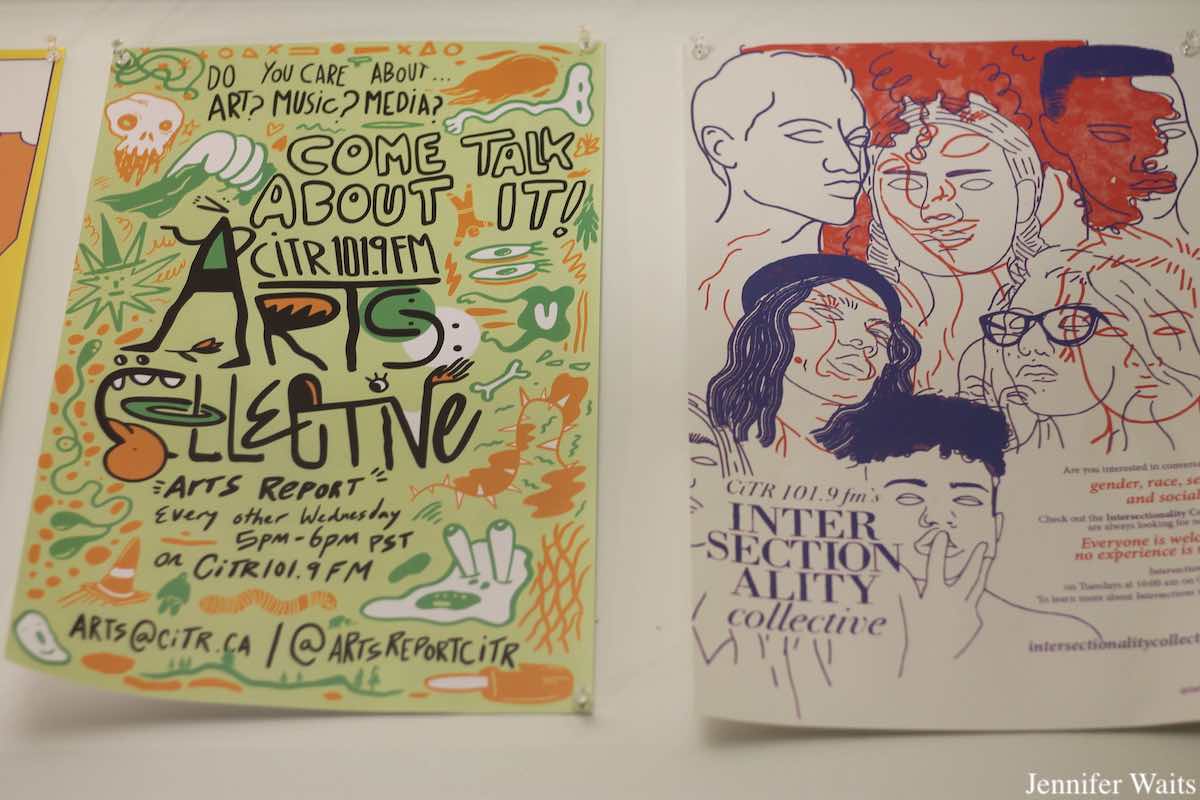 DO YOU CARE ABOUT...
ART? MUSIC? MEDIA?
COME TALK
ABOUT IT!
CiTR 101.9 FM
ARTS
COLLECTIVE
"ARTS REPORT"
Every other Wednesday
5PM-6PM PST
on CiTR 101.9 FM
ARTS@CiTR.CA / @ARTSREPORTCiTR
CiTR 101.9 fm's
INTER
SECTION
ALITY
collective
Are you interested in
gender, race,
and
Check out the Intersectionality
are always looking for
Everyone is
no experience is
on Tuesdays at 10:00 am on
To learn more about Intersections
Jennifer Waits